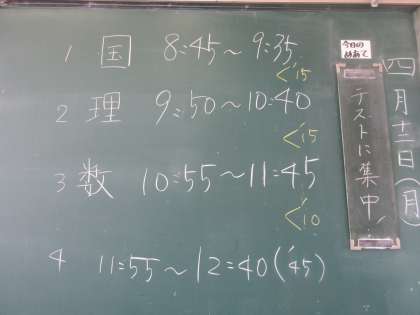 1 国 8:45～9:35
<'15
2 理 9:50～10:40
<'15
3 数 10:55～11:45
<'10
4 11:55～12:40('45)
今日の
めあて
テストに集中!
四月十二日(月)